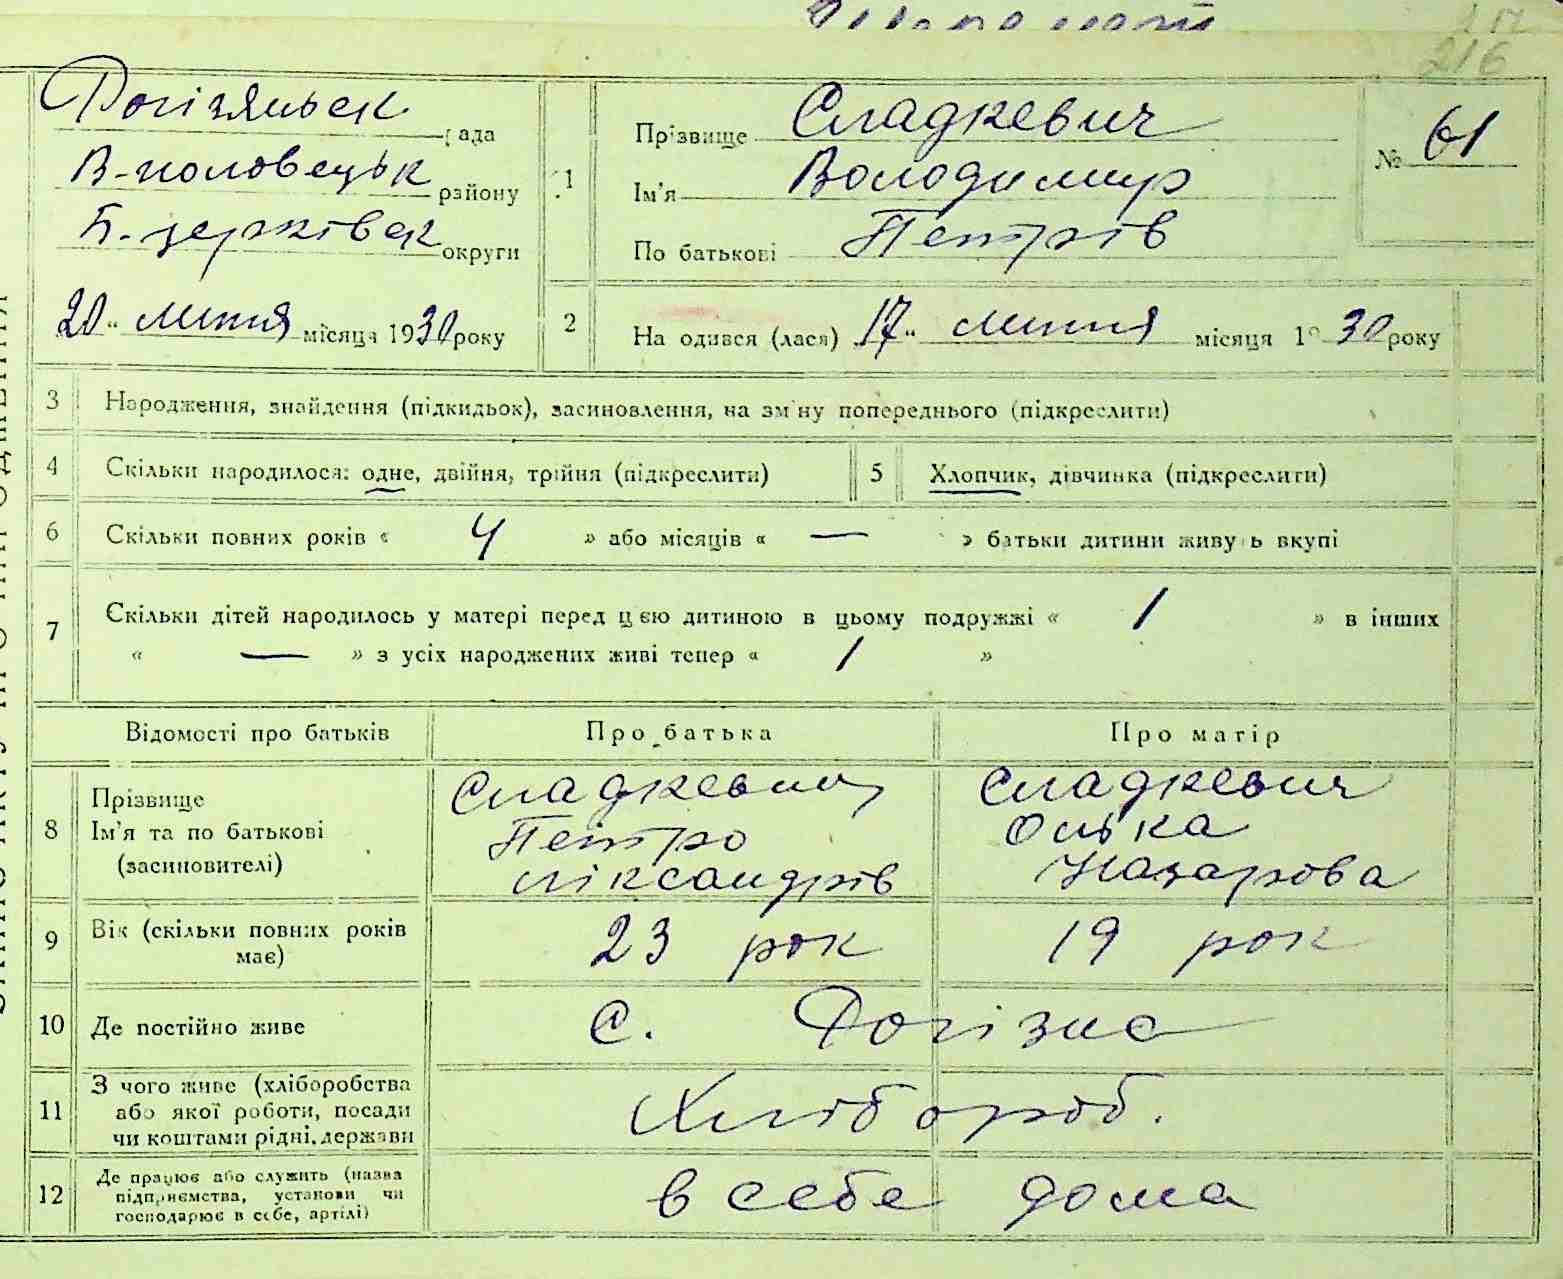 216
Рогізнянськ рада
В-половецьк району
Б. церківск округи
20 „ липня місяця 1930 року
1
Прізвище Сладкевич
Ім'я Володимир
По батькові Петрів
№ 61
2
На одився (лася) 17 „ липня місяця 1930 року
3 Народження, знайдення (підкидьок), засиновлення, на зміну попереднього (підкреслити)
4 Скільки народилося: одне, двійня, трійня (підкреслити)
5 Хлопчик, дівчинка (підкреслити)
6 Скільки повних років « 4 » або місяців « — » батьки дитини живуть вкупі
7 Скільки дітей народилось у матері перед цією дитиною в цьому подружжі « 1 » в інших
« — » з усіх народжених живі тепер « 1 »
Відомості про батьків Про батька Про матір
8 Прізвище
Ім'я та по батькові
(засиновителі)
Сладкевич
Петро
Ліксандрів
Сладкевич
Олька
Назарова
9 Вік (скільки повних років
має)
23 рок
19 рок
10 Де постійно живе
с. Рогізна
11 З чого живе (хліборобства
або якої роботи, посади
чи коштами рідні, держави
Хлібороб.
12 Де працює або служить (назва
підприємства, установи чи
господарює в себе, артілі)
в себе дома